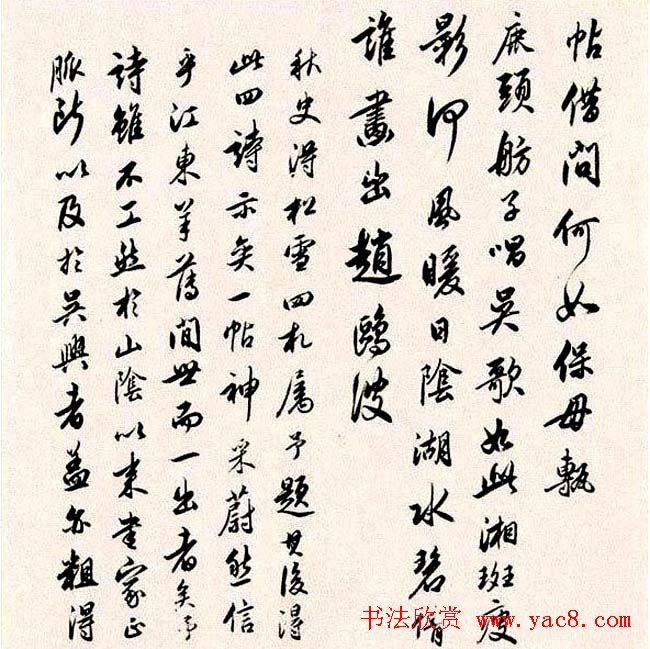 帖借問何如保母甎
鹿頭舫子唱吳歌如此湘斑
影風暖日陰湖水碧倩
誰畫出趙鷗波
秋史得松雪四札屬予題其後得
此四詩示矣一帖神采蔚然信
乎江東羊薄間世而一出者矣予
詩雖不工然於山陰以來書家正
脈所以及於吳興者蓋亦粗得
书法欣赏 www.yac8.com